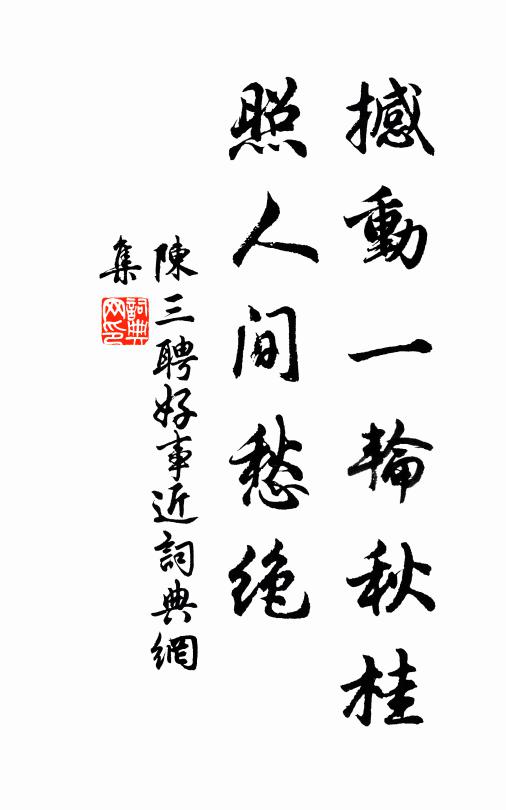 撼動一輪秋桂
照人间愁绝
陳三聘好事近詞典網
集
詞典网印